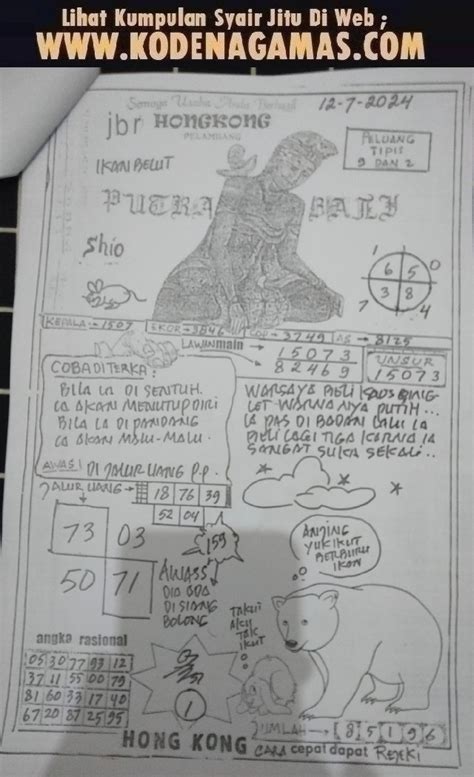 Lihat Kumpulan Syair Jitu Di Web ;
WWW.KODENAGAMAS.COM
Semoga Usaha Anda Berhasil
12-7-2024
jbr HONGKONG
PELAMBANG
PELUANG
TIPIS
9 DAN 2
IKAN BELUT
PUTRA BALI
Shio
1 0
6 5
3 8
7 4
KEPALA = 1507 EKOR = 3846 COP = 3749 AS = 8125
LAWAN main → 15073
→ 82469
UNSUR
15073
COBA DI TERKA:
BILA IA DI SENTUH.
IA AKAN MENUTUP DIRI
BILA IA DI PANDANG
IA AKAN MALU-MALU.
AWAS! DI JALUR UANG P.P.
WARNANYA PUTIH...
IA PAS DI BADAN LALU IA
BELI LAGI TIGA KARNA IA
SANGAT SUKA SEKALI..
JALUR UANG → 18 76 39
52 04
73 03
50 71
159
AWASS
DIA ADA
DI SIANG
BOLONG
ANJING
YUK IKUT
BERBURU
IKAN
TAKUT
AKU
TAK
IKUT
angka rasional
05 30 77 93 12
37 11 55 00 79
81 60 33 17 40
67 20 87 25 95
1
JUMLAH → 8 5 1 9 6
HONG KONG CARA cepat dapat REJEKI